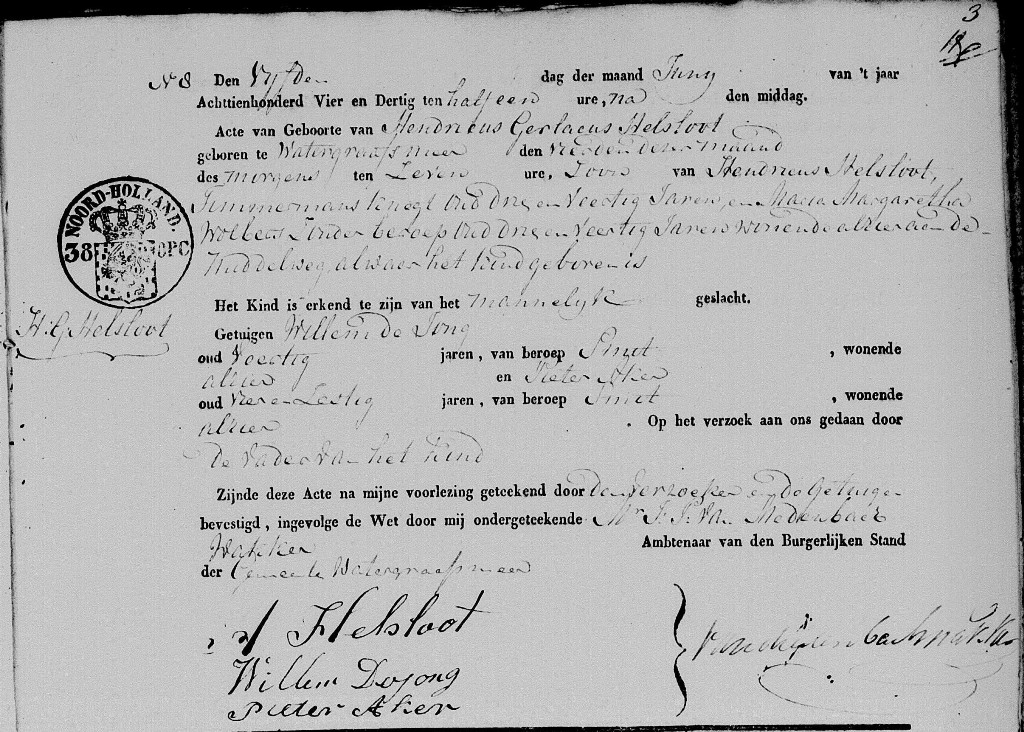 3
N 8 Den Vyfden dag der maand Juny van 't jaar
Achttienhonderd Vier en Dertig ten half een ure, na den middag.
Acte van Geboorte van Hendricus Gerlacus Helsloot
geboren te Watergraafsmeer den vierden dezer maand
des morgens ten Zeven ure, Zoon van Hendricus Helsloot,
Timmermans knegt Oud drie en Veertig Jaren, en Maria Margaretha
Wolters Zonder beroep Oud drie en Veertig Jaren wonende alhier aan de
Middelweg, alwaar het kind geboren is
NOORD-HOLLAND.
38 OPC
Het Kind is erkend te zijn van het mannelyk geslacht.
H: G: Helsloot
Getuigen Willem de Jong
oud Veertig jaren, van beroep Smit, wonende
alhier en Pieter Aker
oud Vier en Zestig jaren, van beroep Smit, wonende
alhier. Op het verzoek aan ons gedaan door
de vader van het kind
Zijnde deze Acte na mijne voorlezing geteekend door den Verzoeker en de Getuigen
bevestigd, ingevolge de Wet door mij ondergeteekende Mr. J. P. van Medenbach
Wakker Ambtenaar van den Burgerlijken Stand
der Gemeente Watergraafsmeer
H Helsloot
Willem De jong
Pieter Aker